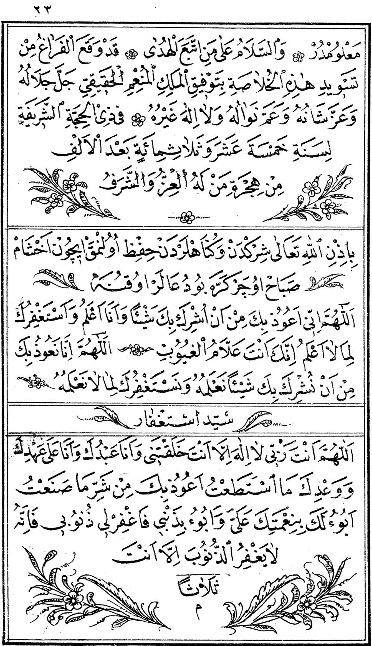 ٢٣
معلومدر وَالسَّلَامُ عَلَى مَنِ اتَّبَعَ الْهُدٰى قَدْ وَقَعَ الْفَرَاغُ مِنْ
تَسْوِيدِ هٰذِهِ الْخُلَاصَةِ بِتَوْفِيقِ الْمَلِكِ الْمُنْعِمِ الْحَقِيقِيِّ جَلَّ جَلَالُهُ
وَعَزَّ شَانُهُ وَعَمَّ نَوَالُهُ وَلَا اِلٰهَ غَيْرُهُ فِي ذِي الْحِجَّةِ الشَّرِيفَةِ
لِسَنَةِ خَمْسَةَ عَشَرَ وَثَلَاثِمِائَةٍ بَعْدَ الْاَلْفِ
مِنْ هِجْرَةِ مَنْ لَهُ الْعِزُّ وَالشَّرَفُ
بِاِذْنِ اللّٰهِ تَعَالٰى شِرْكْدَنْ وَكُنَاهْلَرْدَنْ حِفْظْ اُولُنْمَقْ اِيچُونْ اَخْشَامْ
صَبَاحْ اوچر كَرَّه بُو دُعَالَرْ اُوقُنَه
اَللّٰهُمَّ اِنِّي اَعُوذُ بِكَ مِنْ اَنْ اُشْرِكَ بِكَ شَيْئًا وَاَنَا اَعْلَمُ وَاَسْتَغْفِرُكَ
لِمَا لَا اَعْلَمُ اِنَّكَ اَنْتَ عَلَّامُ الْغُيُوبِ اَللّٰهُمَّ اِنَّا نَعُوذُ بِكَ
مِنْ اَنْ نُشْرِكَ بِكَ شَيْئًا نَعْلَمُهُ وَنَسْتَغْفِرُكَ لِمَا لَا نَعْلَمُهُ
سَيِّدُ اسْتِغْفَارْ
اَللّٰهُمَّ اَنْتَ رَبِّي لَا اِلٰهَ اِلَّا اَنْتَ خَلَقْتَنِي وَاَنَا عَبْدُكَ وَاَنَا عَلٰى عَهْدِكَ
وَوَعْدِكَ مَا اسْتَطَعْتُ اَعُوذُ بِكَ مِنْ شَرِّ مَا صَنَعْتُ
اَبُوءُ لَكَ بِنِعْمَتِكَ عَلَيَّ وَاَبُوءُ بِذَنْبِي فَاغْفِرْ لِي ذُنُوبِي فَاِنَّهُ
لَا يَغْفِرُ الذُّنُوبَ اِلَّا اَنْتَ
ثَلَاثًا
م